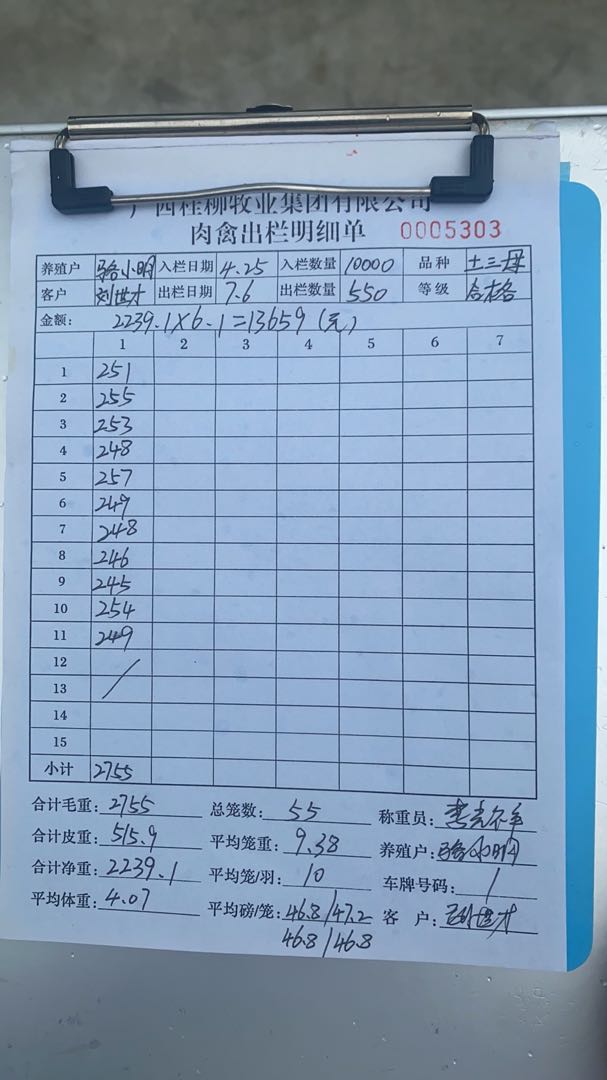 广西桂柳牧业集团有限公司
肉禽出栏明细单 0005303
养殖户 骆小明 入栏日期 4.25 入栏数量 10000 品种 土三母
客户 刘世才 出栏日期 7.6 出栏数量 550 等级 合格
金额: 2239.1×6.1=13659(元)
1 2 3 4 5 6 7
1 251
2 255
3 253
4 248
5 257
6 249
7 248
8 246
9 245
10 254
11 249
12 /
13
14
15
小计 2755
合计毛重: 2755 总笼数: 55 称重员:
合计皮重: 515.9 平均笼重: 9.38 养殖户: 骆小明
合计净重: 2239.1 平均笼/羽: 10 车牌号码: /
平均体重: 4.07 平均磅/笼: 46.8/47.2 客 户: 刘世才
46.8/46.8